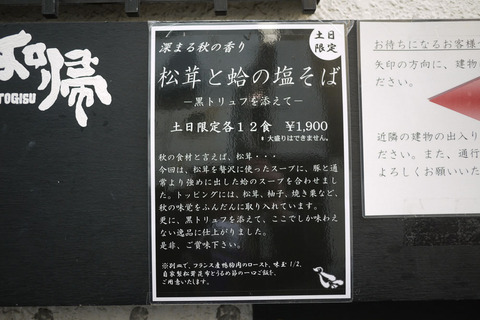 如帰
TOGISU
深まる秋の香り
土日
限定
松茸と蛤の塩そば
－黒トリュフを添えて－
土日限定各１２食 ￥1,900
＊大盛りはできません。
秋の食材と言えば、松茸・・・
今回は、松茸を贅沢に使ったスープに、豚と通
常より強めに出した蛤のスープを合わせまし
た。トッピングには、松茸、柚子、焼き栗など、
秋の味覚をふんだんに取り入れています。
更に、黒トリュフを添えて、ここでしか味わえ
ない逸品に仕上がりました。
是非、ご賞味下さい。
※別皿で、フランス産鴨胸肉のロースト、味玉 1/2、
自家製松茸昆布とうるめ節の一口ご飯を、
ご用意いたします。
お待ちになるお客様
矢印の方向に、建物
ださい。
近隣の建物の出入り
ださい。また、通行
よろしくお願いいた